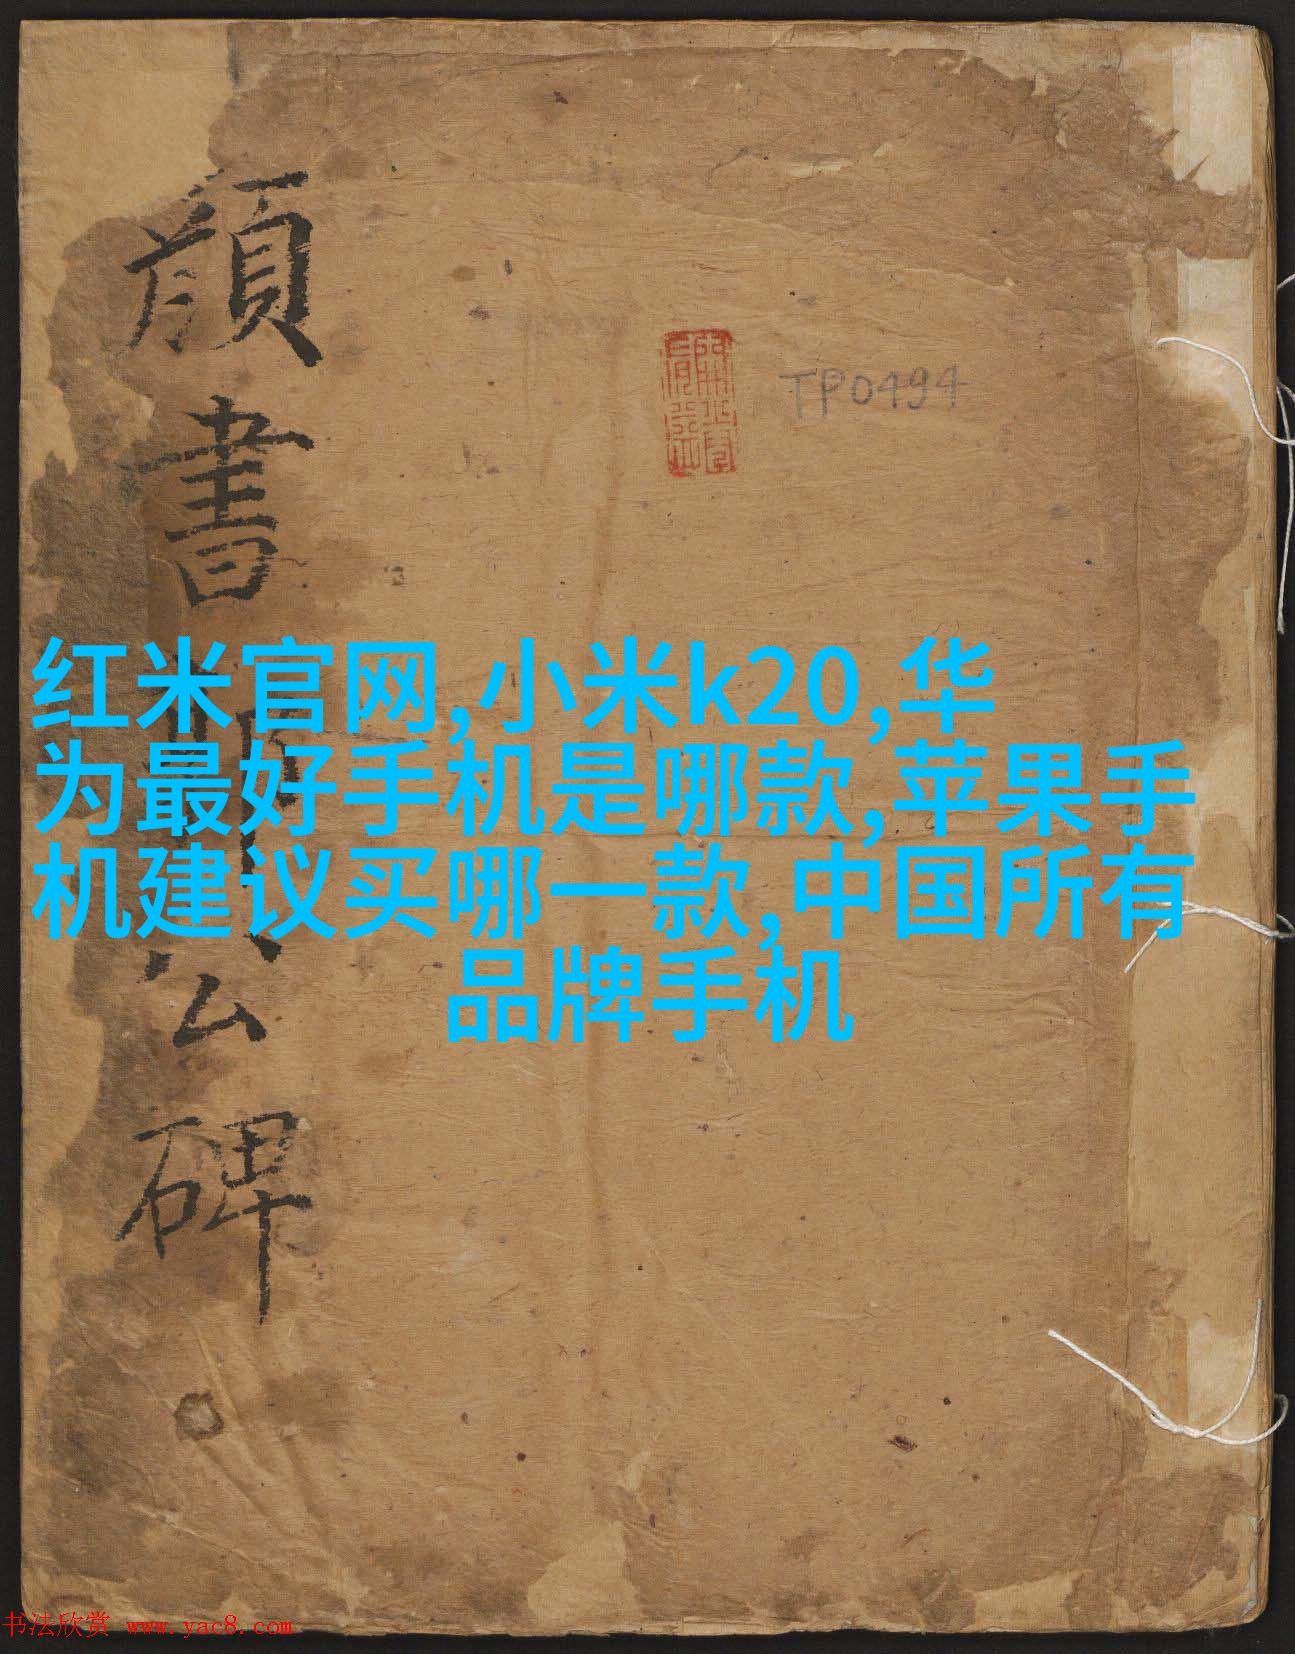 顔書
公碑
TP0494
红米官网,小米k20,华
为最好手机是哪款,苹果手
机建议买哪一款,中国所有
品牌手机
书法欣赏 www.yac8.com